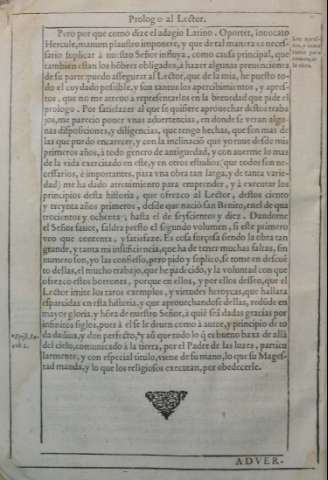 Prolog o al Lector.
Pero por que como dize el adagio Latino. Oportet, inuocato
Hercule, manum plaustro imponere, y que de tal manera es neces-
sario suplicar à nuestro Señor influya, como causa principal, que
tambien estan los hõbres obligados, à hazer algunas preuenciones
de su parte: puedo assegurar al Lector, que de la mia, he puesto to-
do el cuydado possible, y son tantos los apercibimientos, y apres-
tos, que no me atreuo à representarlos en la breuedad que pide el
prologo. Por satisfazer al que se quisiere aprouechar destos traba
jos, me parecio poner vnas aduertencias, en donde se veran algu-
nas disposiciones, y diligencias, que tengo hechas, que son mas de
las que puedo encarecer, y con la inclinació que yo tuue desde mis
primeros años, à todo genero de antiguedad, y con auerme lo mas
de la vida exercitado en este, y en otros estudios, que todos son ne-
cessarios, è importantes, para vna obra tan larga, y de tanta varie-
dad) me ha dado atreuimiento para emprender, y à executar los
principios desta historia, que ofrezco al Lector, destos ciento
y treynta años primeros, desde que nacio san Benito, en el de qua
trocientos y ochenta; hasta el de seyscientos y diez. Dandome
el Señor fauor, saldra presto el segundo volumen, si este primero
veo que contenta, y satisfaze. Es cosa forçosa siendo la obra tan
grande, y tanta mi insuficiencia, que ha de tener muchas faltas, sin
numero son, yo las confiesso, pero pido y suplico, se tome en descuē
to dellas, el mucho trabajo, que he padecido, y la voluntad con que
ofrezco estos borrones, porque en ellos, y por ellos desseo, que el
Lector imite los raros exemplos, y virtudes heroycas, que hallara
esparzidas en esta historia, y que aprouechandose dellas, redûde en
mayor gloria, y hõra de nuestro Señor, à quiē seã dadas gracias por
infinitos siglos, pues à el se le deuen como à autor, y principio de to
da dadiua, y don perfecto, y aũ que todo lo q̃ es bueno baxa de allà
del cielo, comunicado à la tierra, por el Padre de las luzes, particu
larmente, y con especial titulo, viene de su mano, lo que su Mages-
tad manda, y lo que los religiosos executan, por obedecerle.
ADVER-